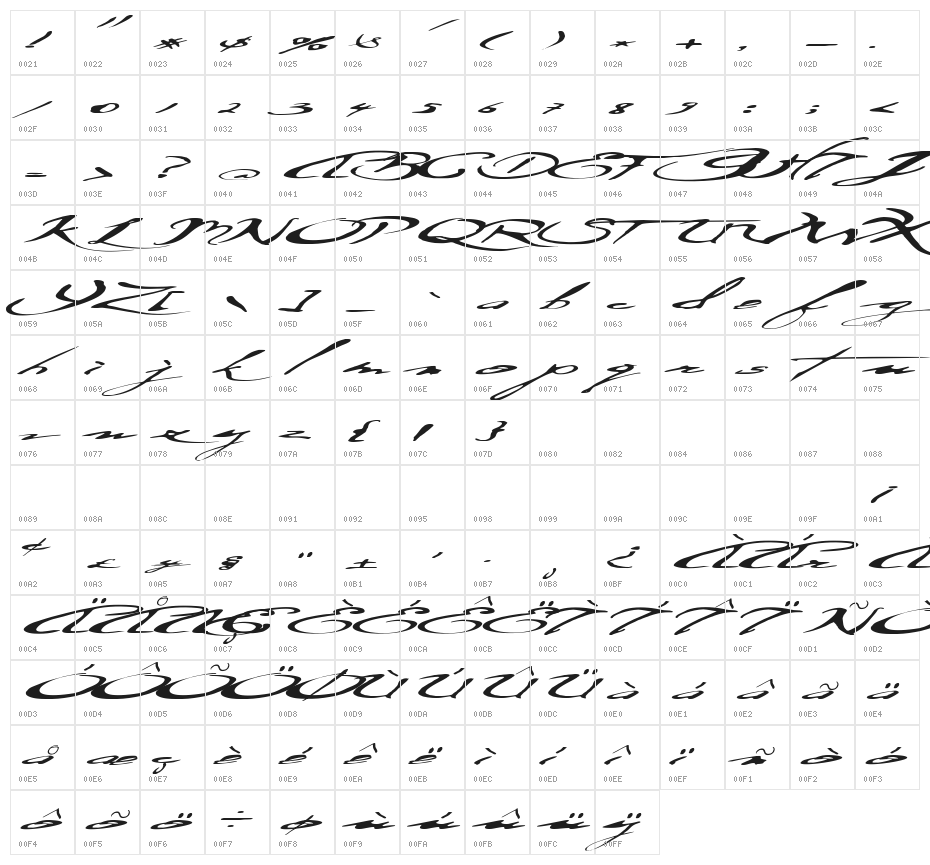 ! " # $ % & ' ( ) * + , - .
0021 0022 0023 0024 0025 0026 0027 0028 0029 002A 002B 002C 002D 002E
/ 0 1 2 3 4 5 6 7 8 9 : ; <
002F 0030 0031 0032 0033 0034 0035 0036 0037 0038 0039 003A 003B 003C
= > ? @ A B C D E F G H I J
003D 003E 003F 0040 0041 0042 0043 0044 0045 0046 0047 0048 0049 004A
K L M N O P Q R S T U V W X
004B 004C 004D 004E 004F 0050 0051 0052 0053 0054 0055 0056 0057 0058
Y Z [ \ ] _ ` a b c d e f g
0059 005A 005B 005C 005D 005F 0060 0061 0062 0063 0064 0065 0066 0067
h i j k l m n o p q r s t u
0068 0069 006A 006B 006C 006D 006E 006F 0070 0071 0072 0073 0074 0075
v w x y z { | }
0076 0077 0078 0079 007A 007B 007C 007D 0080 0082 0084 0086 0087 0088
¡
0089 008A 008C 008E 0091 0092 0095 0098 0099 009A 009C 009E 009F 00A1
¢ £ ¥ § ¨ ± ´ · ¸ ¿ À Á Â Ã
00A2 00A3 00A5 00A7 00A8 00B1 00B4 00B7 00B8 00BF 00C0 00C1 00C2 00C3
Ä Å Æ Ç È É Ê Ë Ì Í Î Ï Ñ Ò
00C4 00C5 00C6 00C7 00C8 00C9 00CA 00CB 00CC 00CD 00CE 00CF 00D1 00D2
Ó Ô Õ Ö Ø Ù Ú Û Ü à á â ã ä
00D3 00D4 00D5 00D6 00D8 00D9 00DA 00DB 00DC 00E0 00E1 00E2 00E3 00E4
å æ ç è é ê ë ì í î ï ñ ò ó
00E5 00E6 00E7 00E8 00E9 00EA 00EB 00EC 00ED 00EE 00EF 00F1 00F2 00F3
ô õ ö ÷ ø ù ú û ü ÿ
00F4 00F5 00F6 00F7 00F8 00F9 00FA 00FB 00FC 00FF